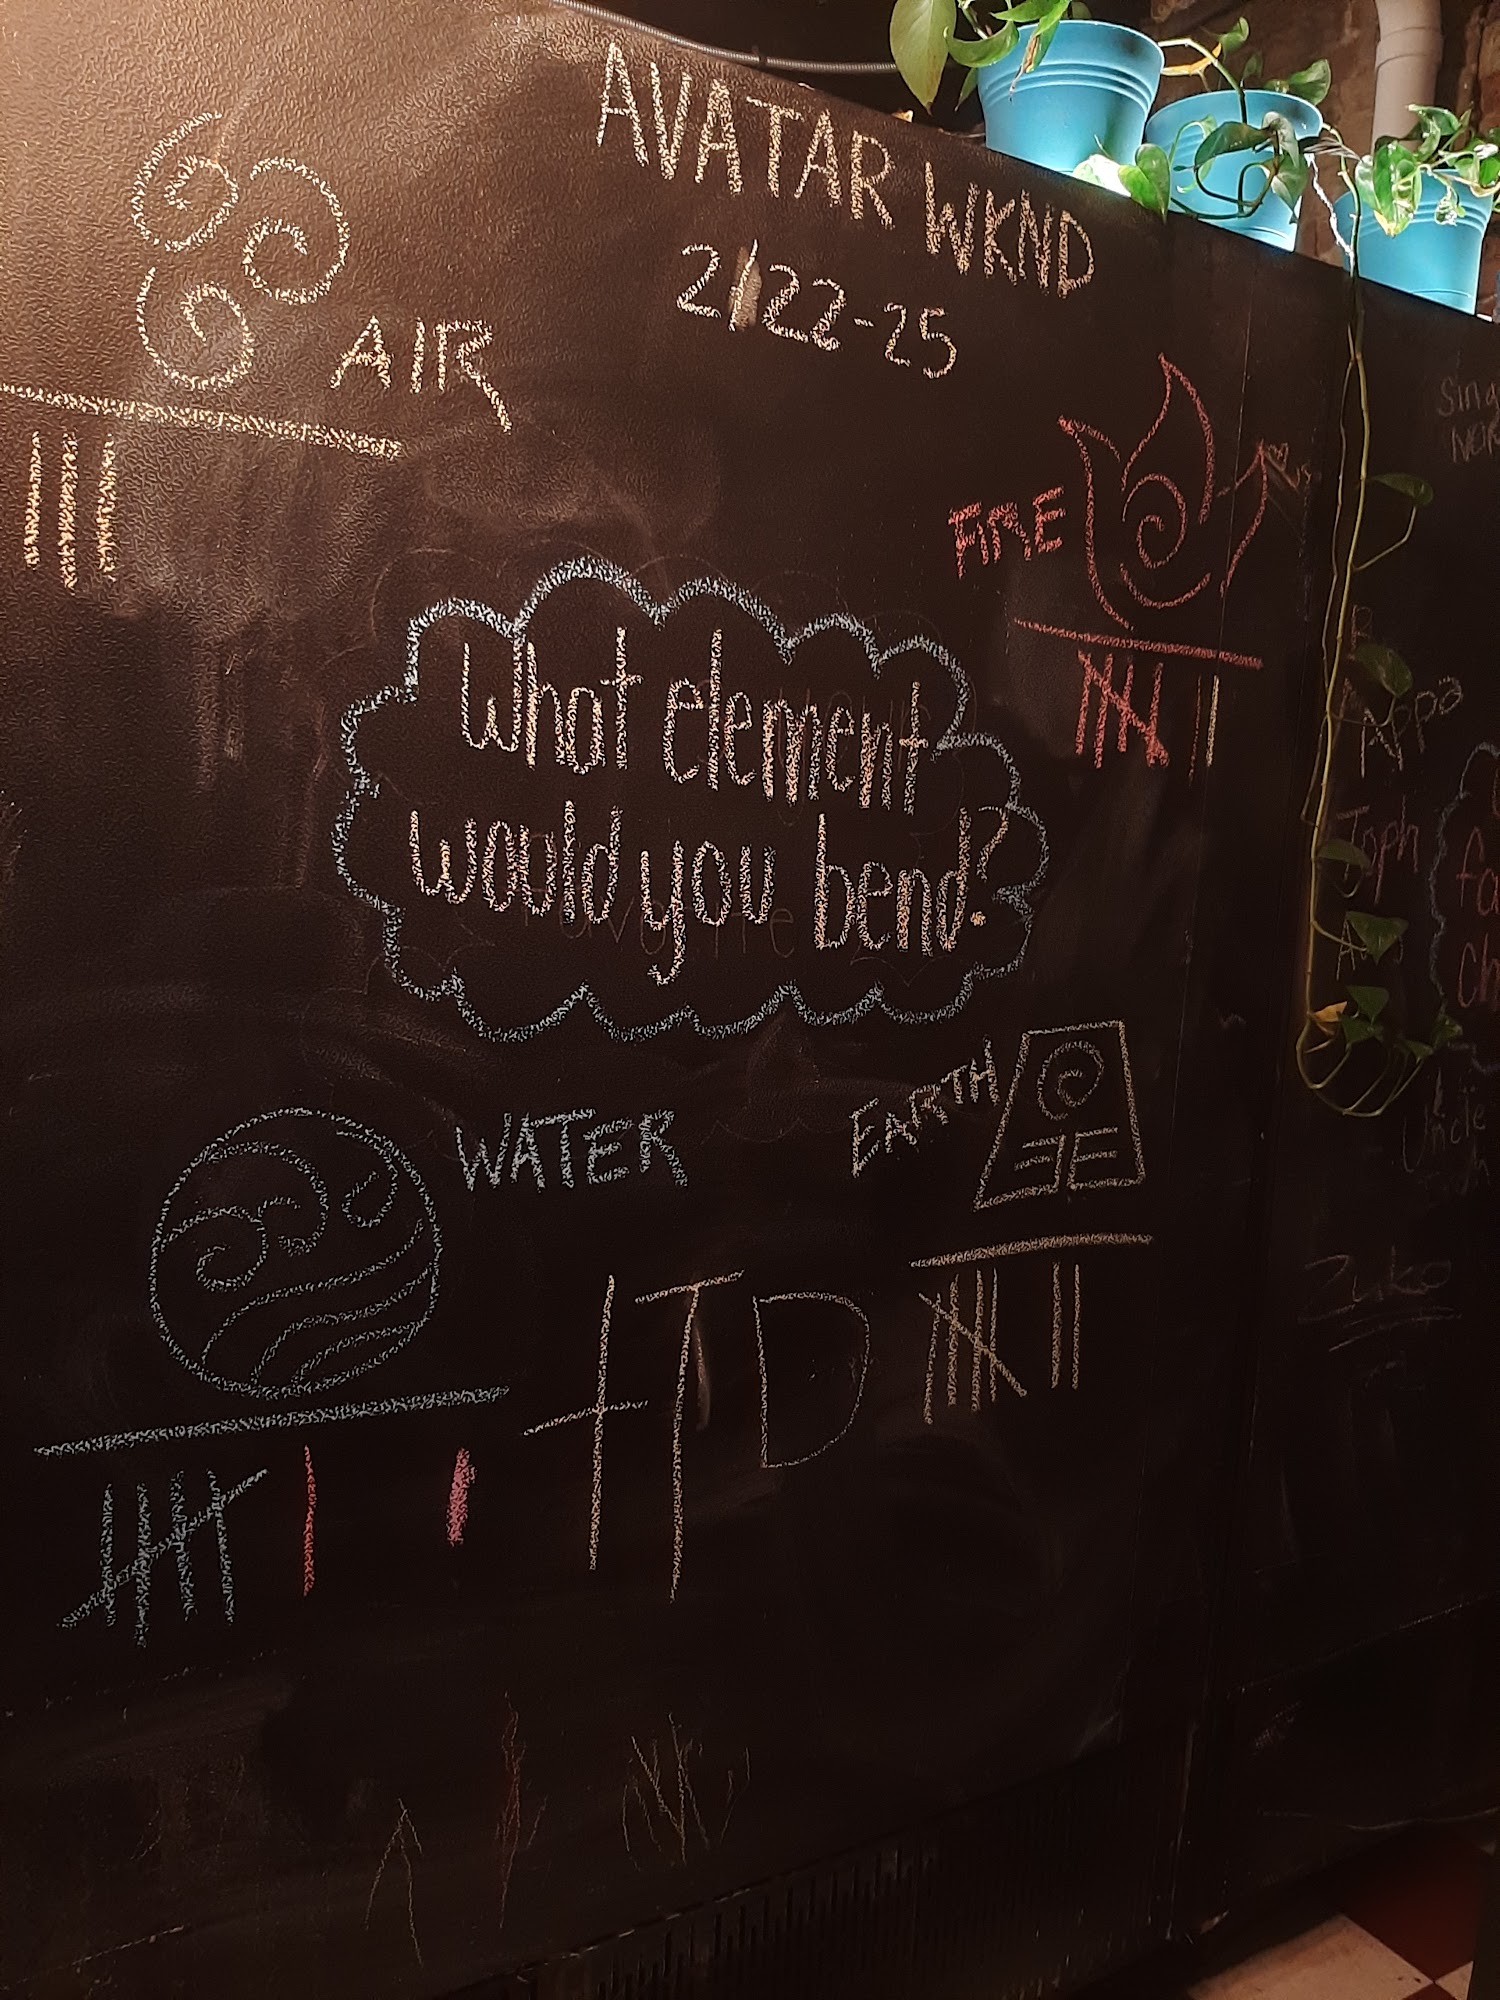 AVATAR WKND
2/22-25
AIR
FIRE
What element
would you bend?
WATER
EARTH
HTD
Sing
Appa
Toph
Uncle
Zuko